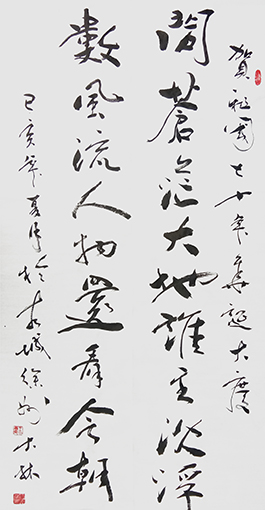 賀祖國七十年華誕大慶
問蒼茫大地誰主沉浮
數風流人物還看今朝
己亥年夏月於城徐州